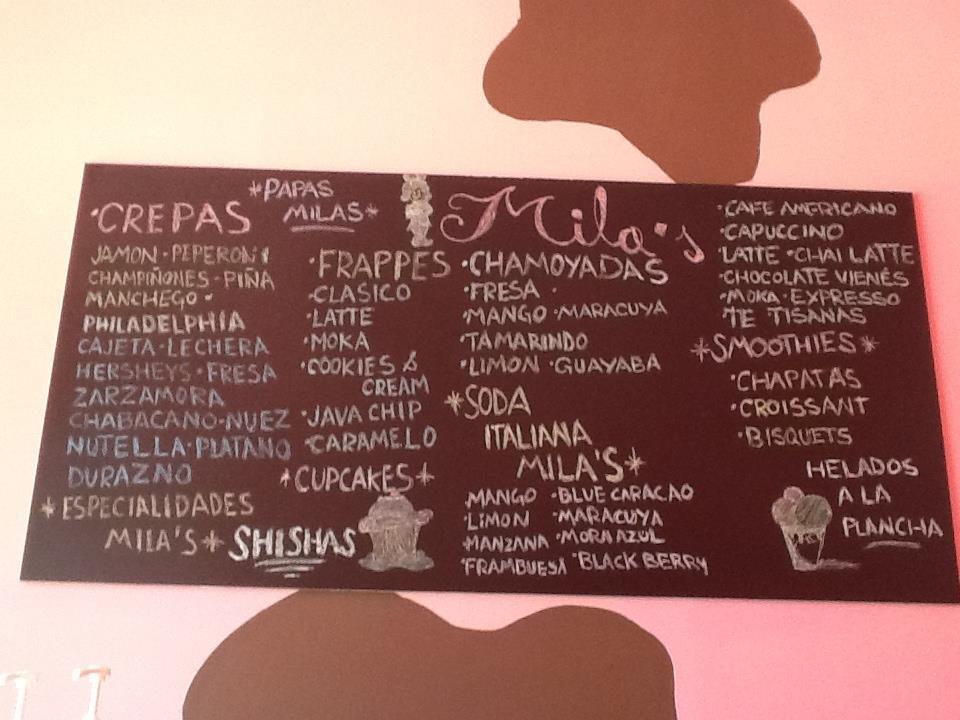 *PAPAS
MILAS*
·CREPAS
JAMON·PEPERONI
CHAMPIÑONES·PIÑA
MANCHEGO·
PHILADELPHIA
CAJETA·LECHERA
HERSHEYS·FRESA
ZARZAMORA
CHABACANO·NUEZ
NUTELLA·PLATANO
DURAZNO
*ESPECIALIDADES
MILA'S*
SHISHAS
·FRAPPES
·CLASICO
·LATTE
·MOKA
·COOKIES &
CREAM
·JAVA CHIP
·CARAMELO
*CUPCAKES*
Mila's
·CHAMOYADAS
·FRESA ·
·MANGO ·MARACUYA
·TAMARINDO
·LIMON ·GUAYABA
*SODA
ITALIANA
MILA'S*
·MANGO ·BLUE CARACAO
·LIMON ·MARACUYA
·MANZANA ·MORA AZUL
·FRAMBUESA ·BLACK BERRY
·CAFE AMERICANO
·CAPUCCINO
·LATTE ·CHAI LATTE
·CHOCOLATE VIENÉS
·MOKA·EXPRESSO
TE TISANAS
*SMOOTHIES*
·CHAPATAS
·CROISSANT
·BISQUETS
HELADOS
A LA
PLANCHA